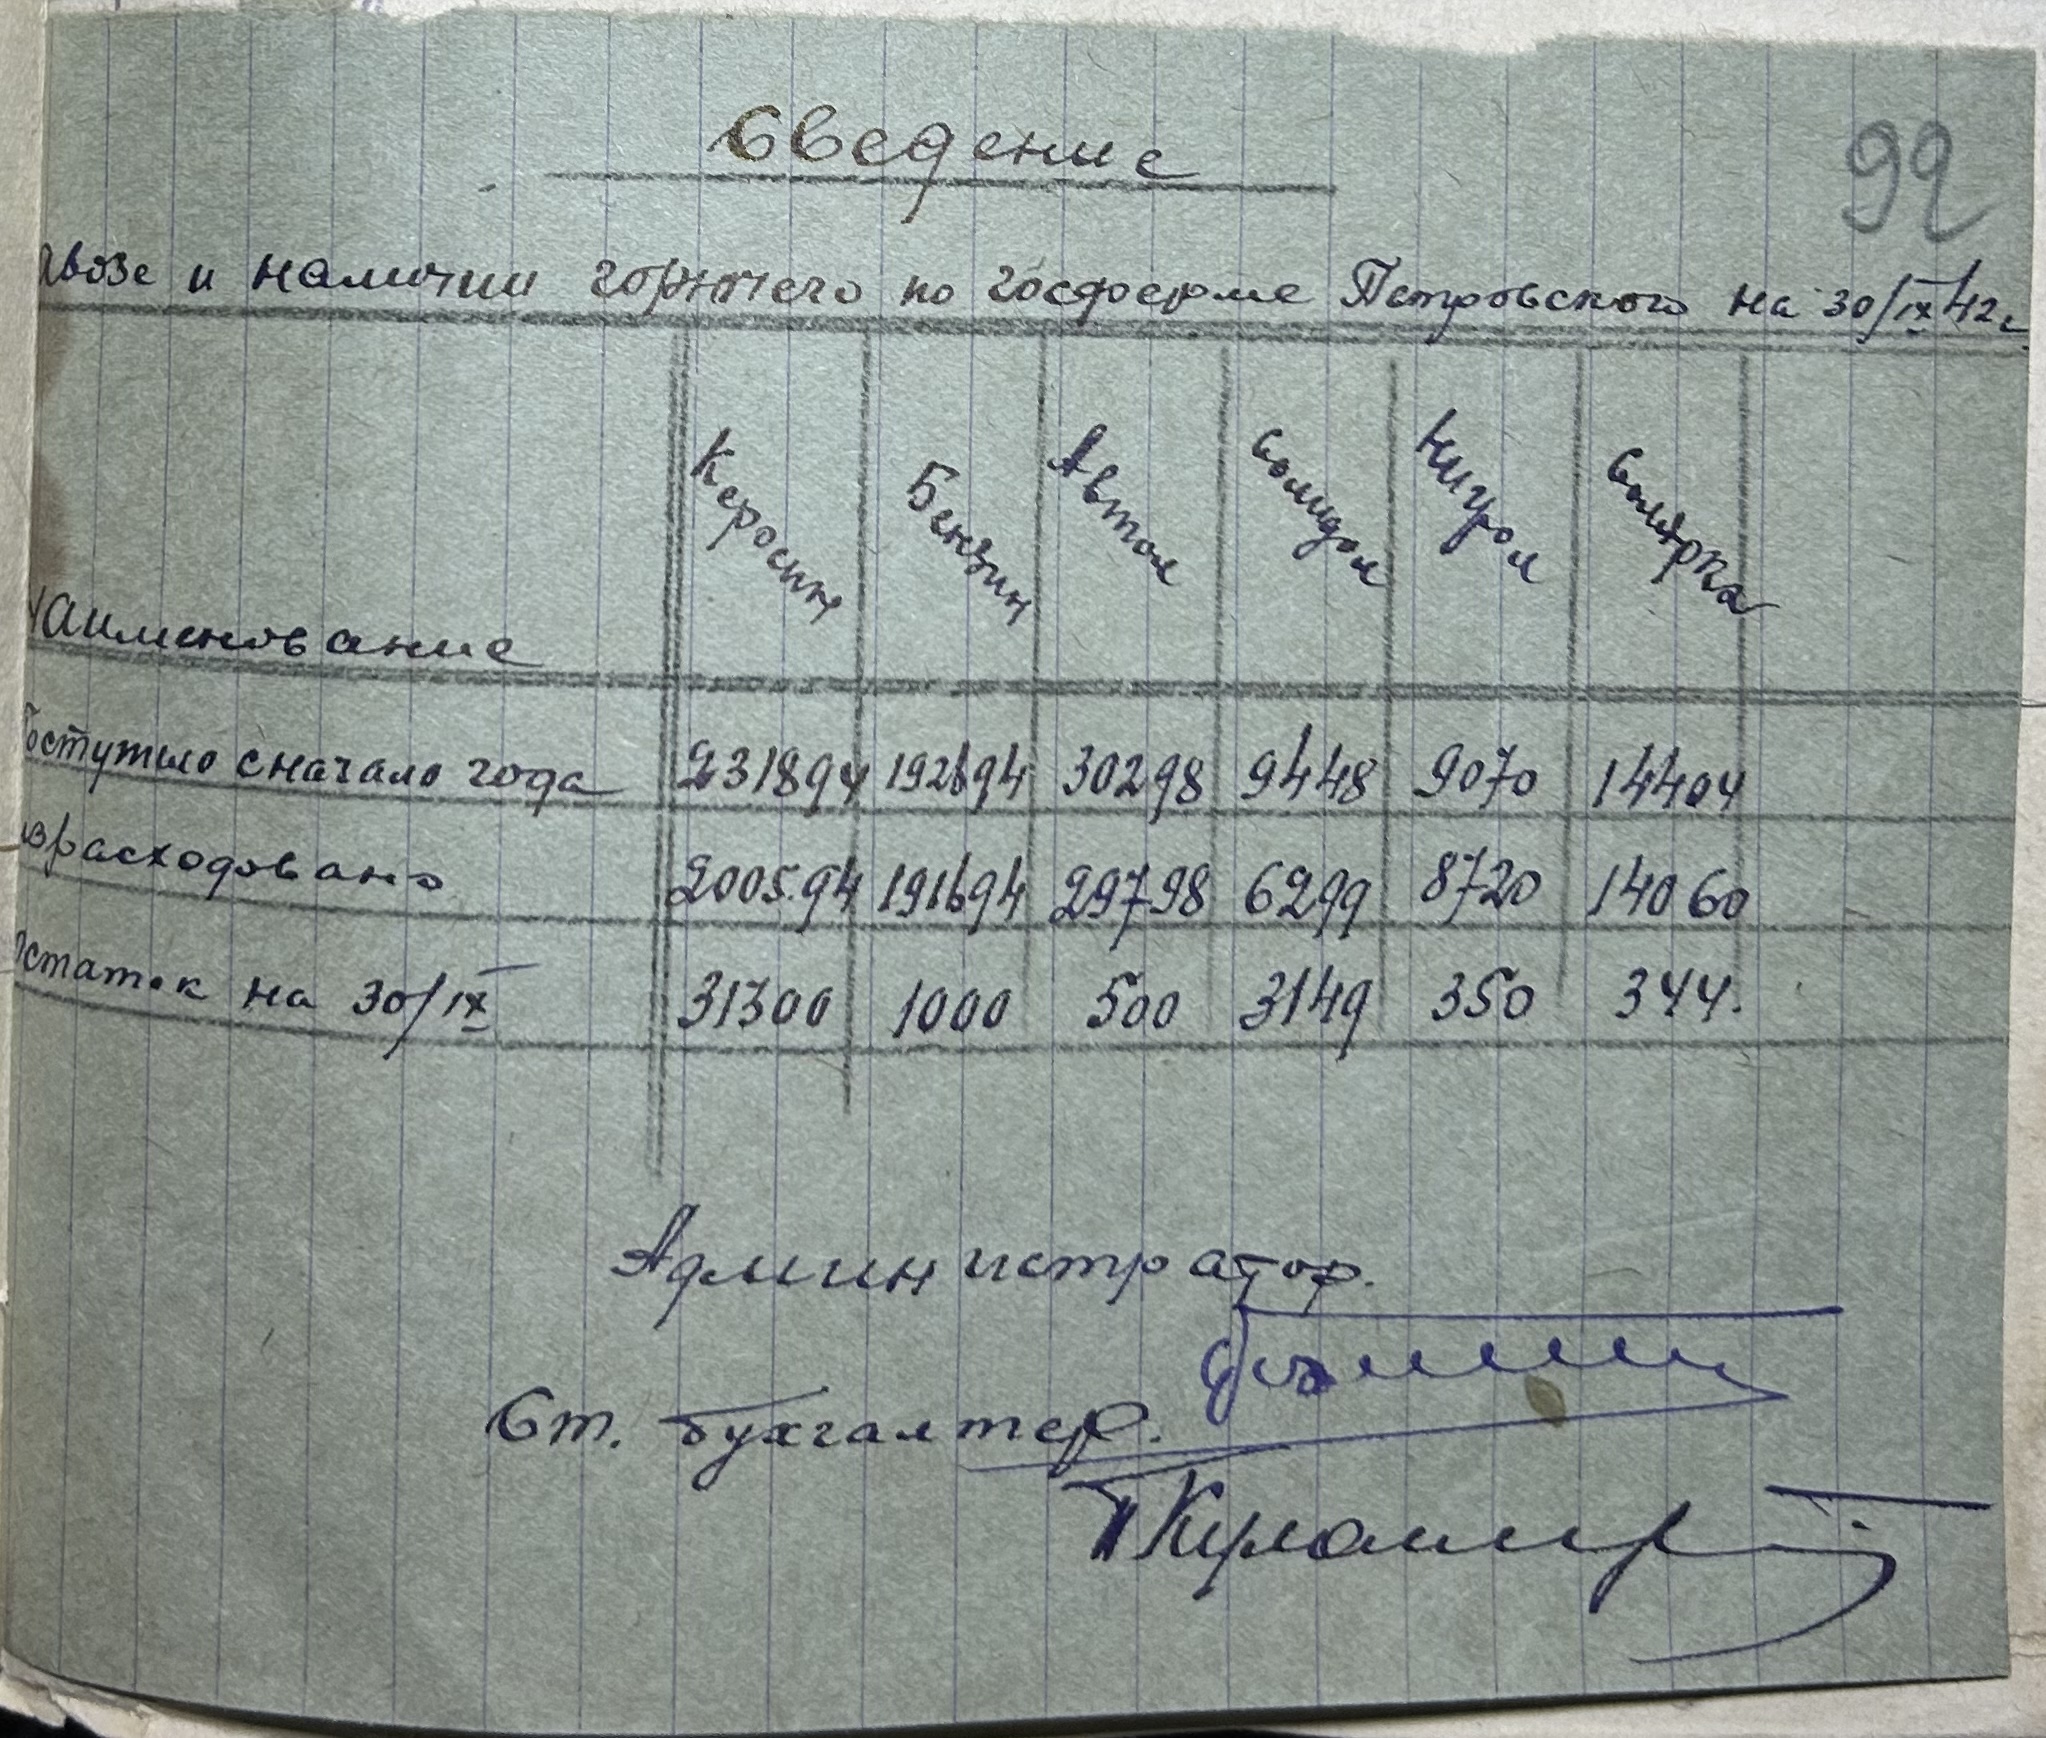 Сведение
92
авозе и наличии горючего по госферме Петровского на 30/IX 42 г
Наименование Керосин Бензин Автол Солидол Нигрол Солярка
Поступило сначало года 231894 192694 30298 9448 9070 14404
израсходовано 200594 191694 29798 6299 8720 14060
остаток на 30/IX 31300 1000 500 3149 350 344.
Администратор.
Ст. бухгалтер.